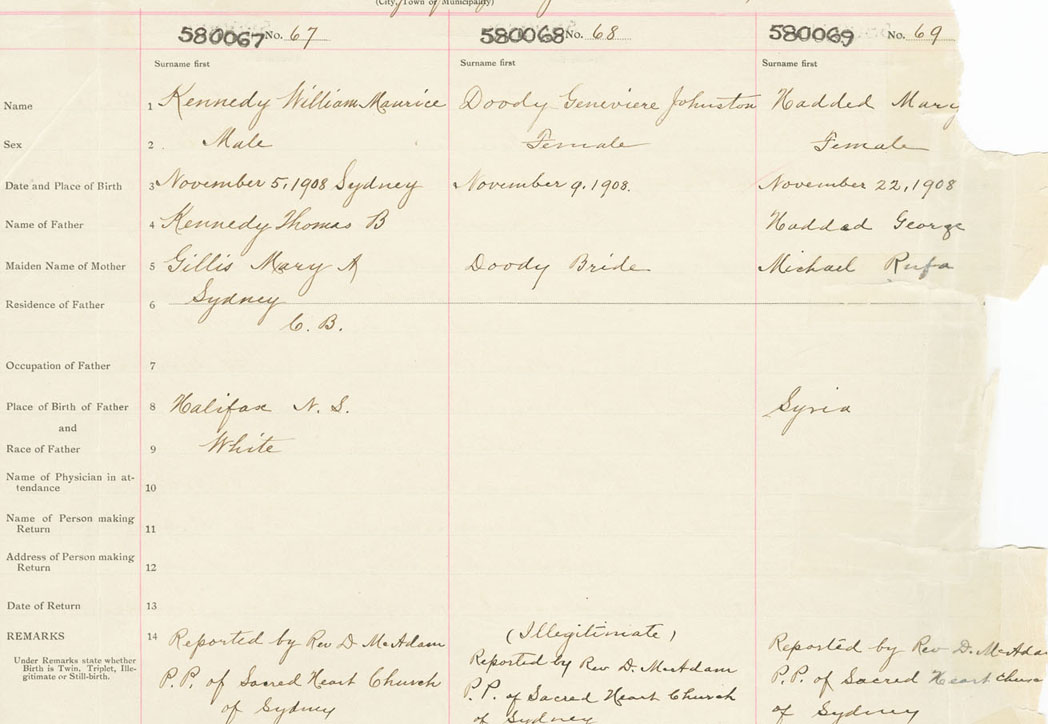 (City, Town or Municipality)
580067 No. 67 580068 No. 68 580069 No. 69
Surname first Surname first Surname first
Name 1 Kennedy William Maurice Doody Genevieve Johnston Hadded Mary
Sex 2 Male Female Female
Date and Place of Birth 3 November 5, 1908 Sydney November 9, 1908. November 22, 1908
Name of Father 4 Kennedy Thomas B Haddad George
Maiden Name of Mother 5 Gillis Mary A Doody Bride Michael Rufa
Residence of Father 6 Sydney
C. B.
Occupation of Father 7
Place of Birth of Father 8 Halifax N. S. Syria
and
Race of Father 9 White
Name of Physician in at-
tendance 10
Name of Person making
Return 11
Address of Person making
Return 12
Date of Return 13
REMARKS 14 Reported by Rev D. McAdam (Illegitimate) Reported by Rev D. McAda
Under Remarks state whether
Birth is Twin, Triplet, Ille-
gitimate or Still-birth.
P.P. of Sacred Heart Church Reported by Rev D. McAdam P.P. of Sacred Heart Churc
of Sydney P.P. of Sacred Heart Church of Sydney
of Sydney